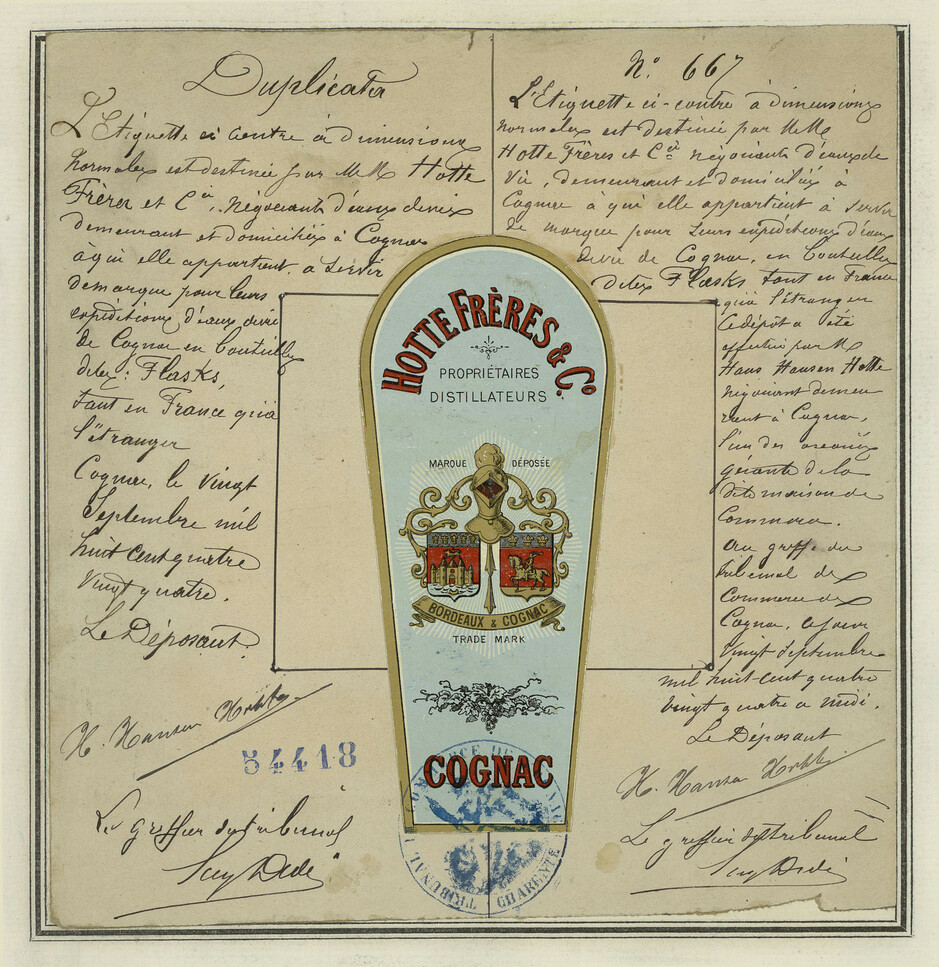 Duplicata
L'Etiquette ci contre à dimensions
normales est destinée par MM Hotte
Frères et Cie, négociants d'eaux de vie
demeurant et domiciliés à Cognac
à qui elle appartient, a servir
de marque pour leurs
expéditions d'eaux de vie
de Cognac en bouteilles
dites: Flasks,
tant en France qu'à
l'étranger
Cognac, le vingt
Septembre mil
huit cent quatre
vingt quatre.
Le Déposant
H. Hansen Hotte
54418
Le greffier du tribunal
N° 667
L'Etiquette ci-contre à dimensions
normales est destinée par MM
Hotte Frères et Cie négociants d'eaux de
vie, demeurant et domiciliés à
Cognac a qui elle appartient à servir
de marque pour leurs expéditions d'eaux
de vie de Cognac, en bouteilles
dites Flasks, tant en France
qu'à l'étranger
Ce dépôt a été
effectué par M
Hans Hansen Hotte
négociant demeu
rant à Cognac,
l'un des associés
gérants de la
dite maison de
Commerce.
Au greffe du
tribunal de
Commerce de
Cognac, ce jour
vingt septembre
mil huit cent quatre
vingt quatre a midi.
Le Déposant
H. Hansen Hotte
Le greffier du tribunal
HOTTE FRÈRES & Co.
PROPRIÉTAIRES
DISTILLATEURS
MARQUE DÉPOSÉE
BORDEAUX & COGNAC
TRADE MARK
COGNAC
TRIBUNAL COMMERCE DE
CHARENTE